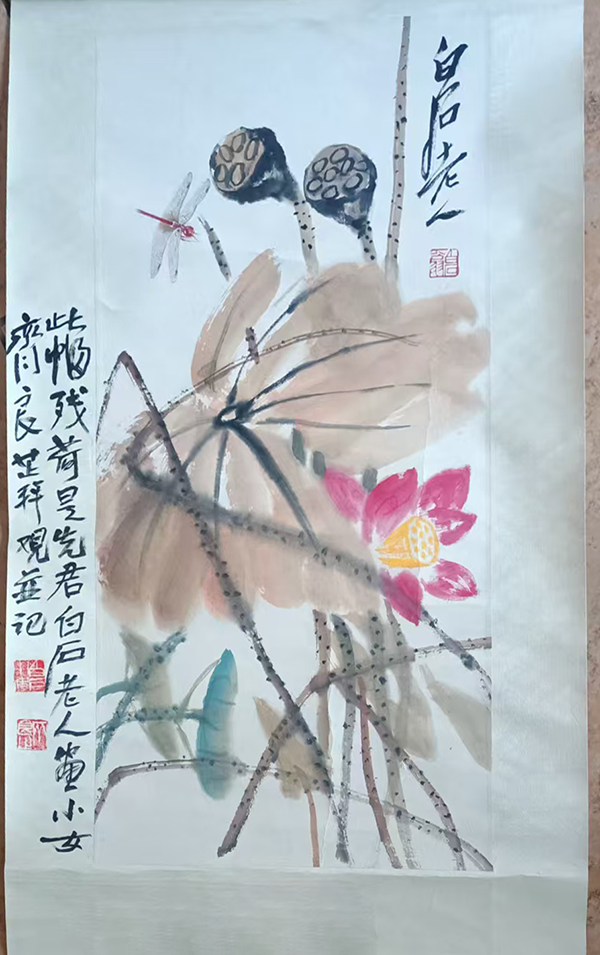 白石老人
此幅残荷是先君白石老人画小女
齐良芷拜观并记